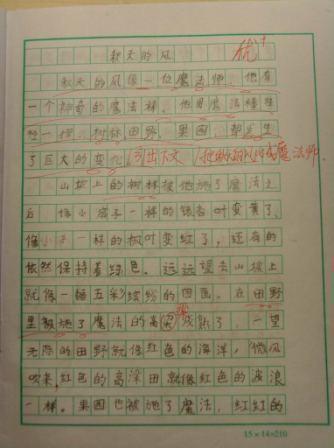 秋天的风
优+
秋天的风像一位魔法师,他有
一个神奇的魔法棒。他用魔法棒
一 树林 田野、果园,都发生
了巨大的变化 引出下文 把秋风比喻成魔法师.
山坡上的树林被他施了魔法之
后,像小扇子一样的银杏叶变黄了,
像小手一样的枫叶变红了,还有的
依然保持着绿色。远远望去山坡上
就像一幅五彩缤纷的图画。在田野
里被施了魔法的高粱成熟了,一望
无际的田野就像红色的海洋,微风
吹来,红色的高梁田就像红色的波浪
一样。果园也被施了魔法,红红的
15×14=210